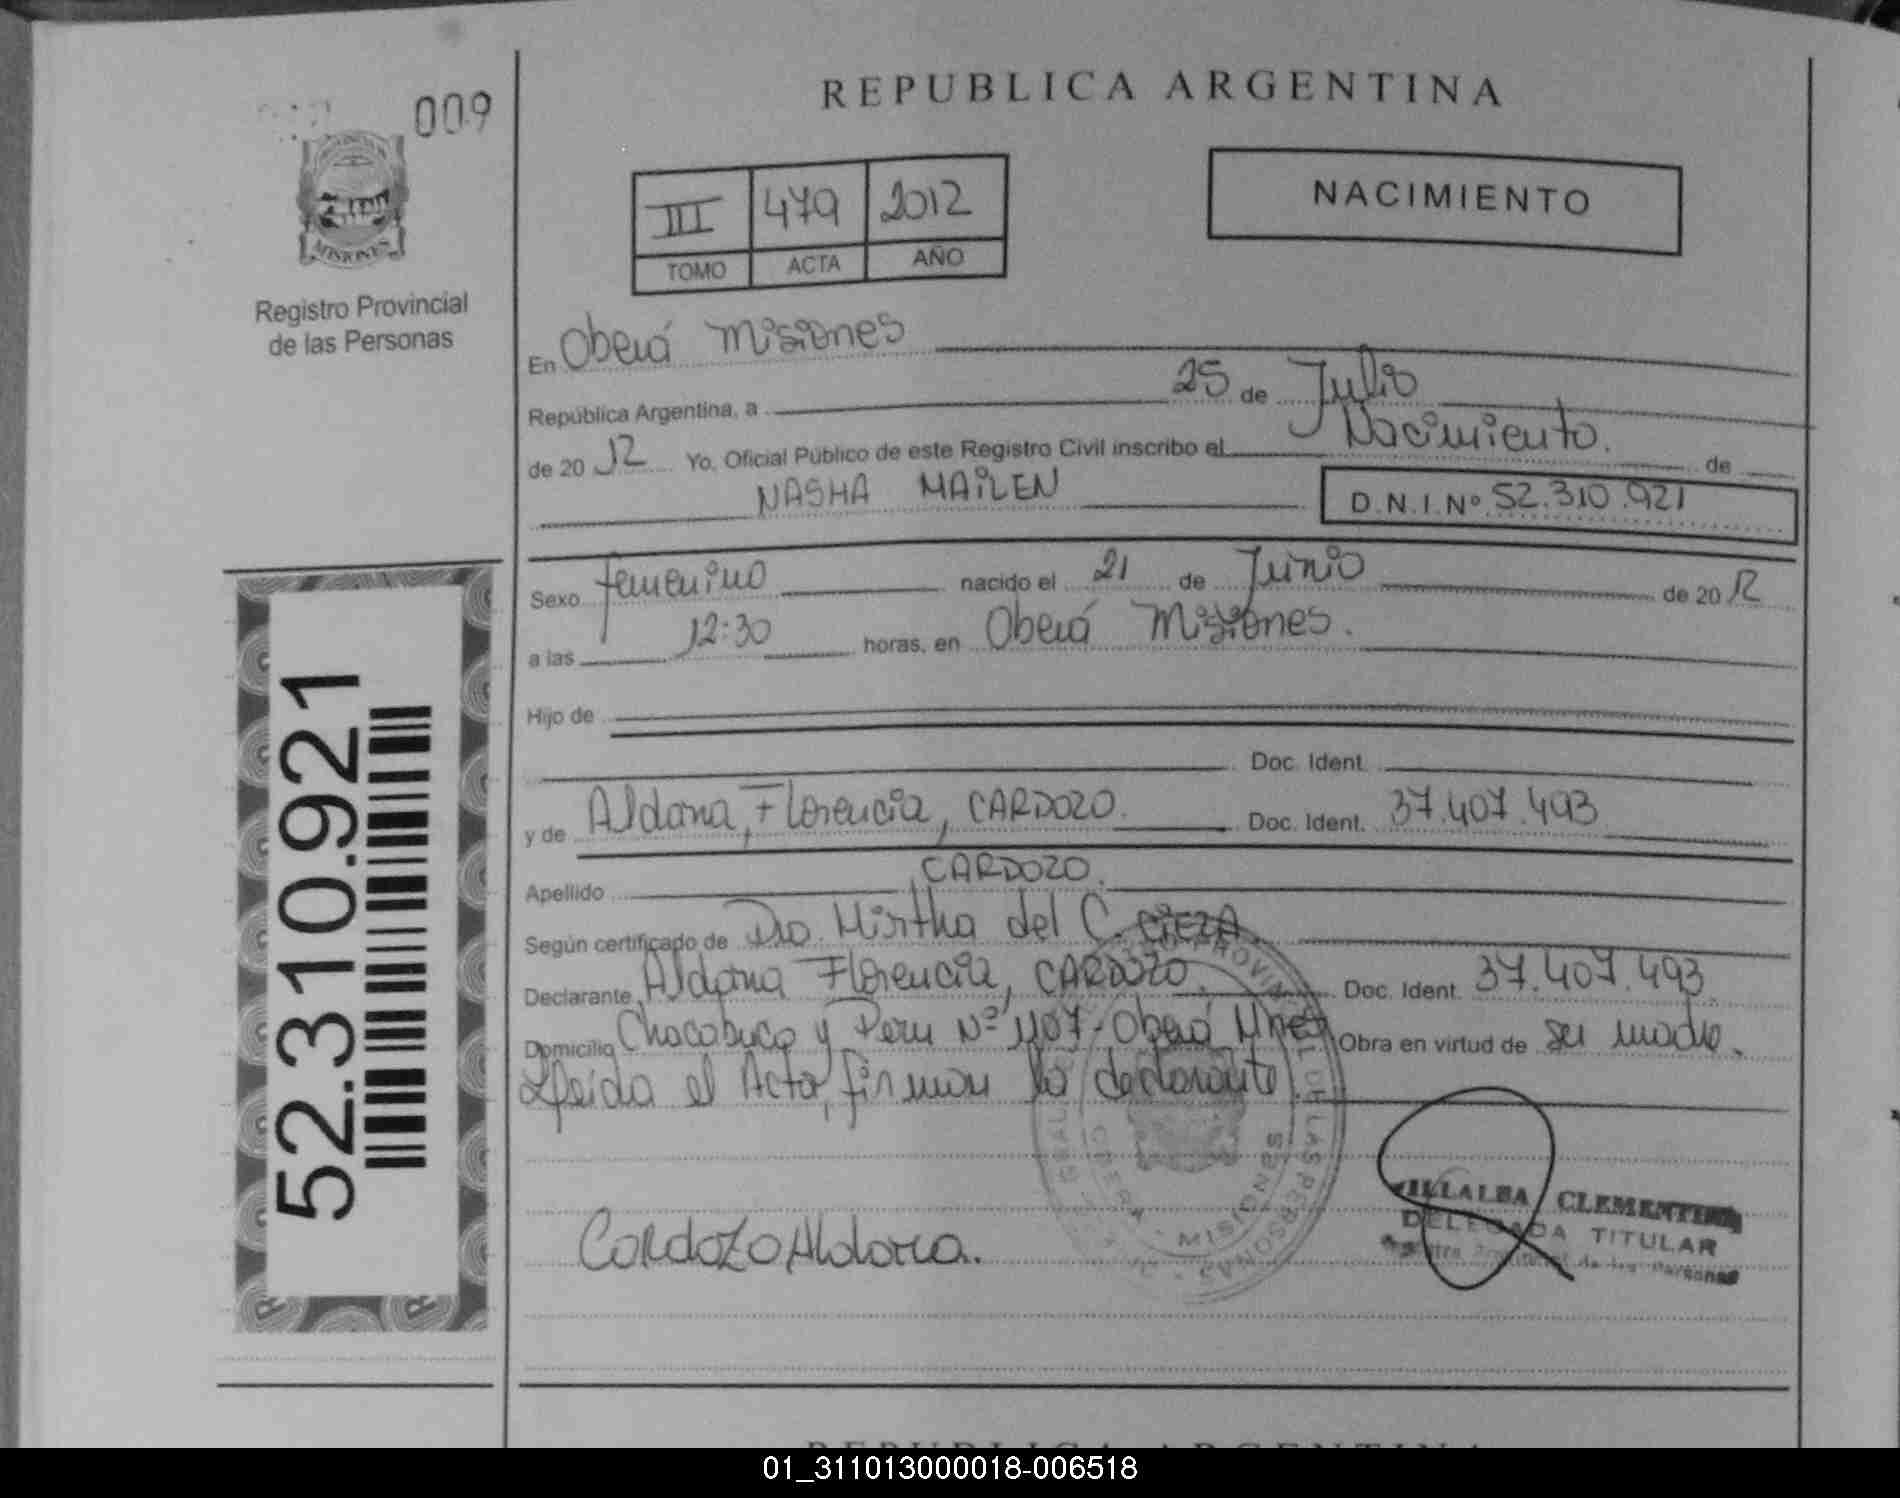 009
REPUBLICA ARGENTINA
III 479 2012
TOMO ACTA AÑO
NACIMIENTO
MISIONES
Registro Provincial
de las Personas
En Oberá Misiones
República Argentina, a 25 de Julio
de 20 12 Yo, Oficial Público de este Registro Civil inscribo el Nacimiento. de
NASHA MAILEN D.N.I.Nº 52.310.921
Sexo femenino nacido el 21 de Junio de 20 12
a las 12:30 horas, en Oberá Misiones.
Hijo de
Doc. Ident.
y de Aldana, Florencia, CARDOZO. Doc. Ident. 37.407.493
Apellido CARDOZO.
Según certificado de Dra. Mirtha del C. CIEZA.
Declarante Aldana Florencia, CARDOZO. Doc. Ident. 37.407.493
Domicilio Chacabuco y Peru Nº 1107-Oberá Mnes Obra en virtud de su madre.
Leída el Acta, firman la declarante.
52.310.921
Cardozo Aldana.
VILLALBA CLEMENTINA
DELEGADA TITULAR
Registro Provincial de las Personas
MISIONES
REPUBLICA ARGENTINA
01_311013000018-006518